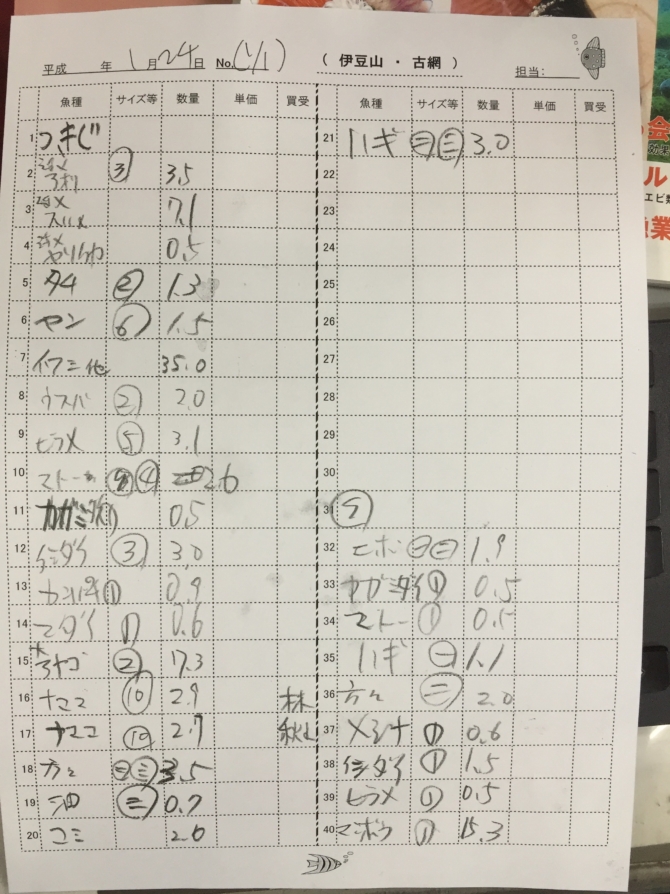 平成 年 1月24日 No.(1/1) ( 伊豆山 ・ 古網 ) 担当:
魚種 サイズ等 数量 単価 買受
1
2 ③ 3.5
3 7.1
4 0.5
5 ② 1.3
6 ヤン ⑥ 1.5
7 35.0
8 ウスバ ② 2.0
9 ヒラメ ⑤ 3.1
10 マトー ④ 2.6
11 カガミダイ① 0.5
12 イシダイ ③ 3.0
13 カンパチ① 0.9
14 マダイ ① 0.6
15 ② 17.3
16 ナマコ ⑩ 2.9
17 ナマコ ⑲ 2.7
18 方々 ㊁㊂ 3.5
19 油 ㊂ 0.7
20 コミ 2.6
魚種 サイズ等 数量 単価 買受
21 ハギ ㊁㊂ 3.0
22
23
24
25
26
27
28
29
30
31
32 エボ ㊁㊁ 1.9
33 カガミダイ① 0.5
34 マトー ① 0.5
35 ハギ ㊀ 1.1
36 方々 ㊂ 2.0
37 メジナ ① 0.6
38 イシダイ ① 1.5
39 ヒラメ ① 0.5
40 マンボウ ① 15.3
ル
エビ
業